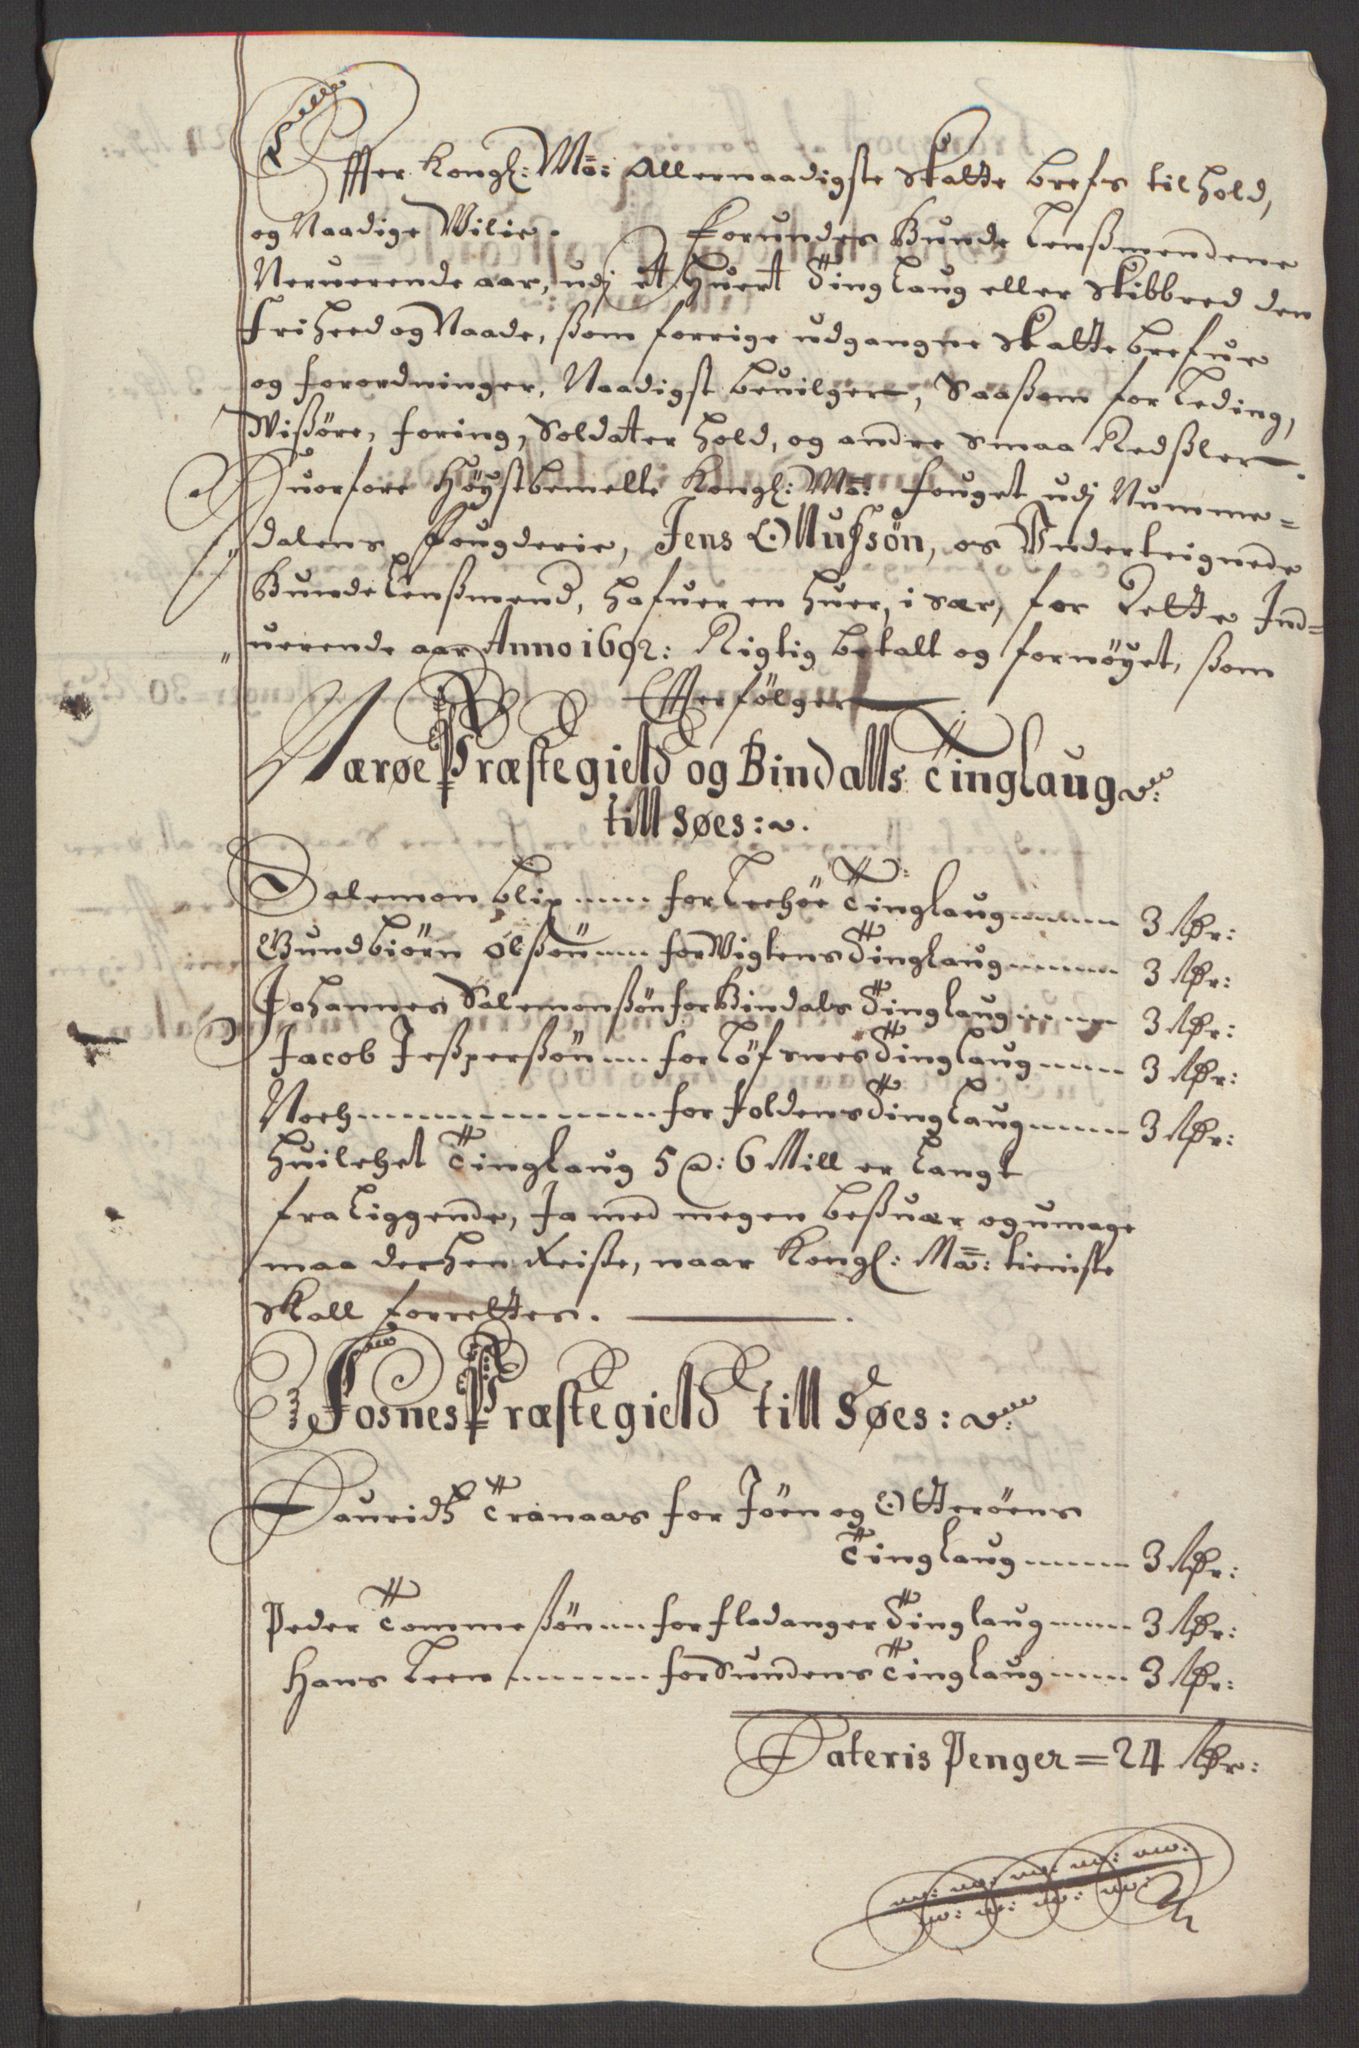 Effter Kongl: Ma: Allernaadigste Skatte brefs tilhold,
og Naadige Wilie. Forundes Bunde Lensmendene
Neruerende aar, udj et huert Tinglaug eller Skibbred den
Friheed og Naade, ßom forrige udgangne Skatte brefue
og forordninger, Naadigst beuilger, Saaßom for Leding,
Wißøre, foring, Soldater hold, og andre Smaa Redßler.
Huorfore Høystbemelte Kongl: Ma: fouget udj Numme=
dalens Fougderie, Jens Ollufsøn, os Underteignede
Bunde Lenßmend, hafuer en huer, i sær, for Dette Ind=
uerende aar Anno 1692: Rigtig betalt og fornøyet, ßom
Effterfølger
Nærøe Præstegield og Bindalls Tinglaug
till Søes:
Salemon Blix for Leehøe Tinglaug 3 Rdr:
Gundbiørn Olßøn for Wigtens Tinglaug 3 Rdr:
Johannes Salemonßøn for Bindals Tinglaug 3 Rdr:
Jacob Jeßperßøn for Løfsnes Tinglaug 3 Rdr:
Noch for Foldens Tinglaug 3 Rdr:
huilchet Tinglaug 5 a: 6 Mill er langt
fra liggende, Ja med megen beßuær og umage
maa derhen Reiße, naar Kongl: Ma: tieniste
Skall forrettes.
Fosnes Præstegield till Søes:
Lauridtz Tranaas for Jøen og Otterøens
Tinglaug 3 Rdr:
Peder Tommeßøn for Fladanger Tinglaug 3 Rdr:
Hans Leen for Sundens Tinglaug 3 Rdr:
Lateris Penger = 24 Rdr: